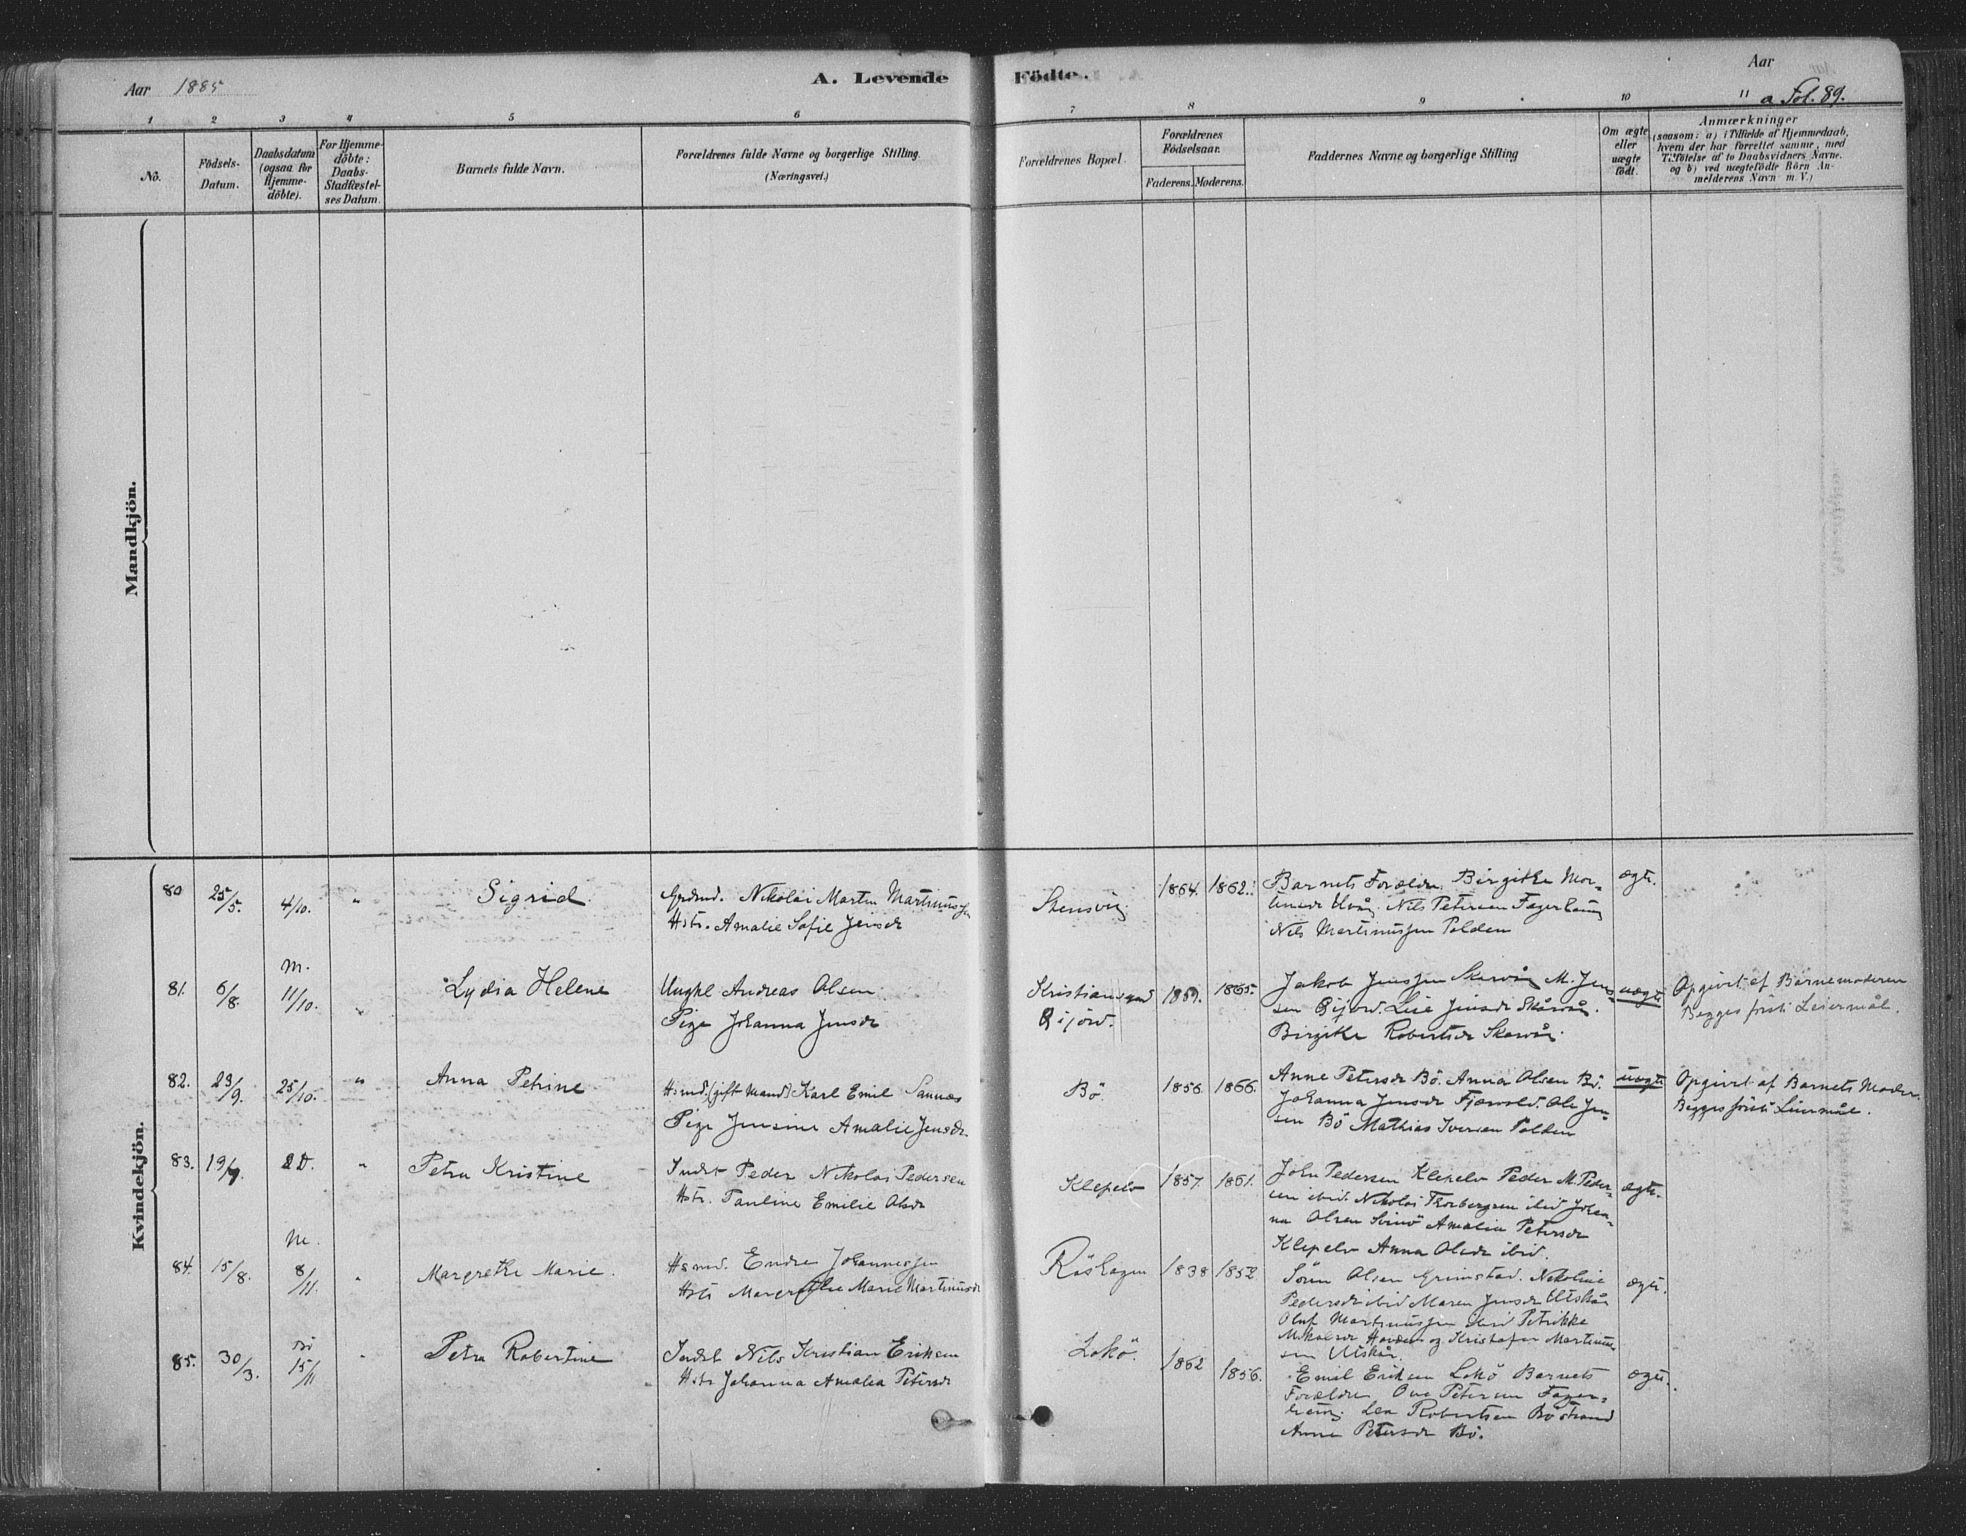 Aar 1885
A. Levende Födte.
Aar
a Fol. 89.
1 2 3 4 5 6 7 8 9 10 11
No.
Födsels-
Datum.
Daabsdatum
(ogsaa for
Hjemme-
döbte).
For Hjemme-
döbte:
Daabs-
Stadfæstel-
ses Datum.
Barnets fulde Navn.
Forældrenes fulde Navne og borgerlige Stilling
(Næringsvei.)
Forældrenes Bopæl.
Forældrenes
Födselsaar.
Faderens. Moderens.
Faddernes Navne og borgerlige Stilling
Om ægte
eller
uægte
födt.
Anmærkninger
(saasom: a) i Tilfælde af Hjemmedaab,
hvem der har forrettet samme, med
Tilföielse af to Daabsvidners Navne.
og b) ved uægtefödte Börn An-
melderens Navn m. V.)
Mandkjön.
Kvindekjön.
80 25/5. 4/10. " Sigrid.
Nikolai Martin Martinussen
Hstr. Amalie Sofie Jensdr
Stensvig 1864. 1862.
Barnets Forældre. Birgitte Mor-
Nils Petersen Fagerhaug
Nils Martinussen Polden
ægte.
81. 6/8. m. 11/10. " Lydia Helene
Ungkl Andreas Olsen
Pige Johanna Jensdr
Kristiansund
Qvjörd.
1859. 1865.
Jakob Jenssen Skarvåg M. Jens-
sen Lise Jensdr
Birgitte Robertsdr
uægte
Opgivet af Barnemoderen
Begges förste Leiermål.
82. 23/9. 25/10. " Anna Petrine
Hsmd. (gift Mand) Karl Emil Sannæs
Pige Jensine Amalie Jensdr.
Bö. 1856. 1866.
Anne Petersdr Bö. Anna Olsen Bö.
Johanna Jensdr Fjærvold. Ole Jen-
sen Bö Mathias Iversen Polden
uægte
Opgivet af Barnets Moder.
Begges förste Leiermål.
83. 19/9. 2 D. " Petra Kristine
Indst Peder Nikolai Pedersen
Hstr. Pauline Emilie Olsdr
Klepelv 1857. 1861.
John Pedersen Klepelv Peder M. Peder-
sen ibid. Nikolai Thorbergsen ibid Johan-
na Olsen Svinö Amalia Petersdr
Klepelv Anna Olsdr ibid.
ægte.
84. 15/8. m. 8/11. " Margrethe Marie.
Hsmd. Endre Johannessen
Hstr Margrethe Marie Martinusdr
Röshagen 1838 1852
Sören Olsen Grimstad. Nikoline
Pedersdr ibid Maren Jensdr Utskår
Oluf Martinussen ibid Petrikke
og Kristofer Martinus-
sen Utskår.
ægte.
85. 30/3. Bö 15/11 " Petra Robertine
Indst Nils Kristian Eriksen
Hstr Johanna Amalia Petersdr
Lokö. 1862 1856.
Emil Eriksen Lokö Barnets
Forældre Ove Petersen Fager-
haug. Lea Robertsen Böstrand
Anne Petersdr Bö.
ægte.